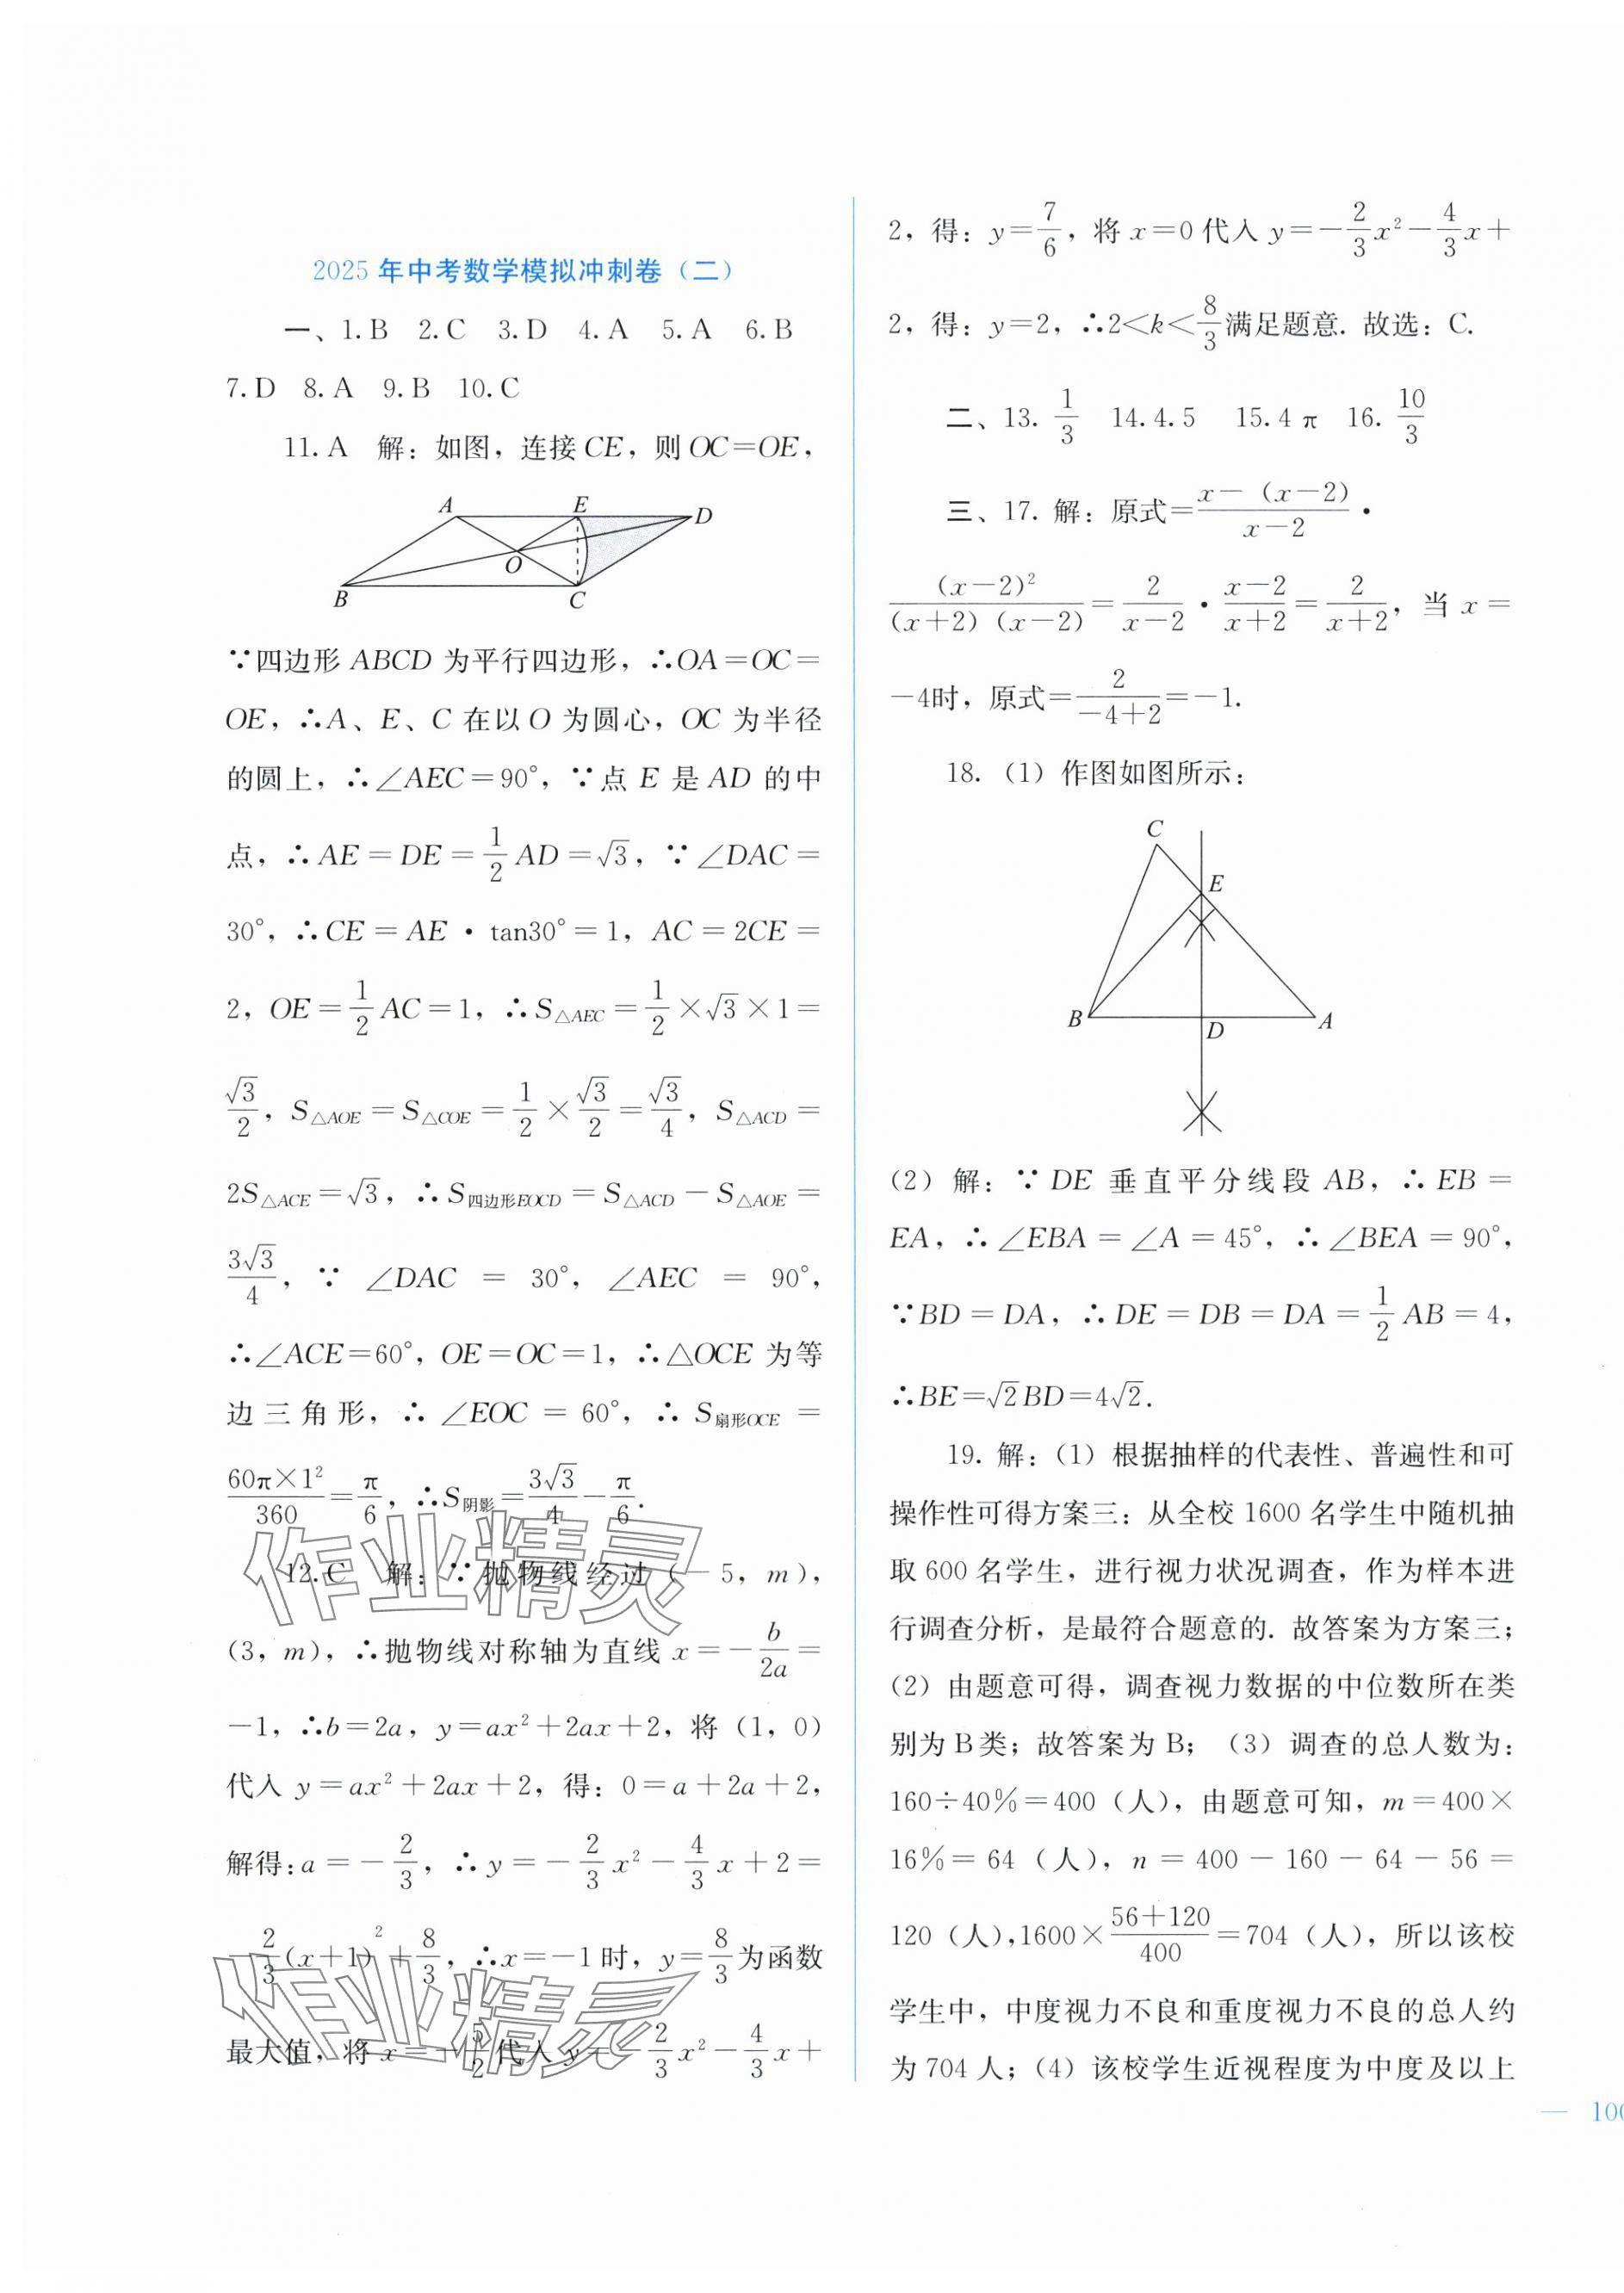 2025 年中考数学模拟冲刺卷（二）
一、1. B 2. C 3. D 4. A 5. A 6. B
7. D 8. A 9. B 10. C
11. A 解：如图，连接 CE，则 OC＝OE，
A E D
O
B C
∵四边形 ABCD 为平行四边形，∴OA＝OC＝
OE，∴A、E、C 在以 O 为圆心，OC 为半径
的圆上，∴∠AEC＝90°，∵点 E 是 AD 的中
点，∴AE＝DE＝1/2 AD＝√3，∵∠DAC＝
30°，∴CE＝AE·tan30°＝1，AC＝2CE＝
2，OE＝1/2 AC＝1，∴S△AEC＝1/2×√3×1＝
√3/2，S△AOE＝S△COE＝1/2×√3/2＝√3/4，S△ACD＝
2S△ACE＝√3，∴S四边形EOCD＝S△ACD－S△AOE＝
3√3/4，∵∠DAC＝30°，∠AEC＝90°，
∴∠ACE＝60°，OE＝OC＝1，∴△OCE 为等
边三角形，∴∠EOC＝60°，∴S扇形OCE＝
60π×1²/360＝π/6，∴S阴影＝3√3/4－π/6.
作业精灵
12. C 解：∵抛物线经过（－5，m），
（3，m），∴抛物线对称轴为直线 x＝－b/2a＝
－1，∴b＝2a，y＝ax²＋2ax＋2，将（1，0）
代入 y＝ax²＋2ax＋2，得：0＝a＋2a＋2，
解得：a＝－2/3，∴y＝－2/3x²－4/3x＋2＝
－2/3(x＋1)²＋8/3，∴x＝－1 时，y＝8/3为函数
作业精灵
最大值，将 x＝－5/2代入 y＝－2/3x²－4/3x＋
2，得：y＝7/6，将 x＝0 代入 y＝－2/3x²－4/3x＋
2，得：y＝2，∴2＜k＜8/3满足题意. 故选：C.
二、13. 1/3 14. 4.5 15. 4π 16. 10/3
三、17. 解：原式＝x－（x－2）/x－2·
（x－2）²/（x＋2）（x－2）＝2/x－2·x－2/x＋2＝2/x＋2，当 x＝
－4时，原式＝2/－4＋2＝－1.
18.（1）作图如图所示：
C
E
B D A
（2）解：∵DE 垂直平分线段 AB，∴EB＝
EA，∴∠EBA＝∠A＝45°，∴∠BEA＝90°，
∵BD＝DA，∴DE＝DB＝DA＝1/2 AB＝4，
∴BE＝√2BD＝4√2.
19. 解：（1）根据抽样的代表性、普遍性和可
操作性可得方案三：从全校 1600 名学生中随机抽
取 600 名学生，进行视力状况调查，作为样本进
行调查分析，是最符合题意的. 故答案为方案三；
（2）由题意可得，调查视力数据的中位数所在类
别为 B 类；故答案为 B；（3）调查的总人数为：
160÷40%＝400（人），由题意可知，m＝400×
16%＝64（人），n＝400－160－64－56＝
120（人），1600×56＋120/400＝704（人），所以该校
学生中，中度视力不良和重度视力不良的总人约
为 704 人；（4）该校学生近视程度为中度及以上
— 100